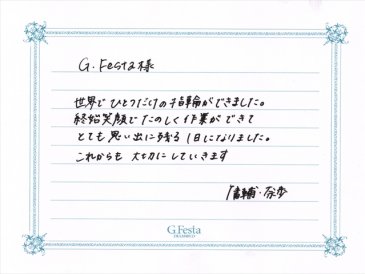 G.Festa様
世界でひとつだけの指輪ができました。
終始笑顔でたのしく作業ができて
とても思い出に残る1日になりました。
これからも大切にしていきます
輔・奈
G.Festa